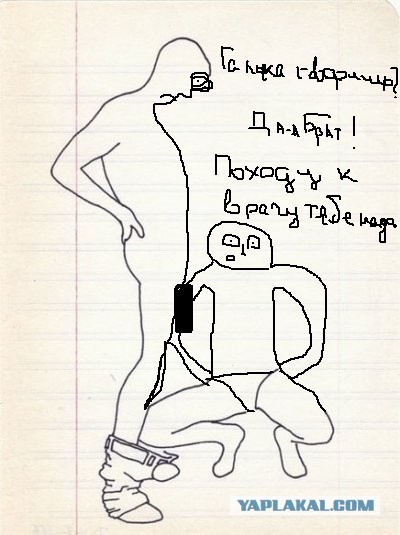 Да-а Брат!
Походу к
врачу тебе надо
YAPLAKAL.COM